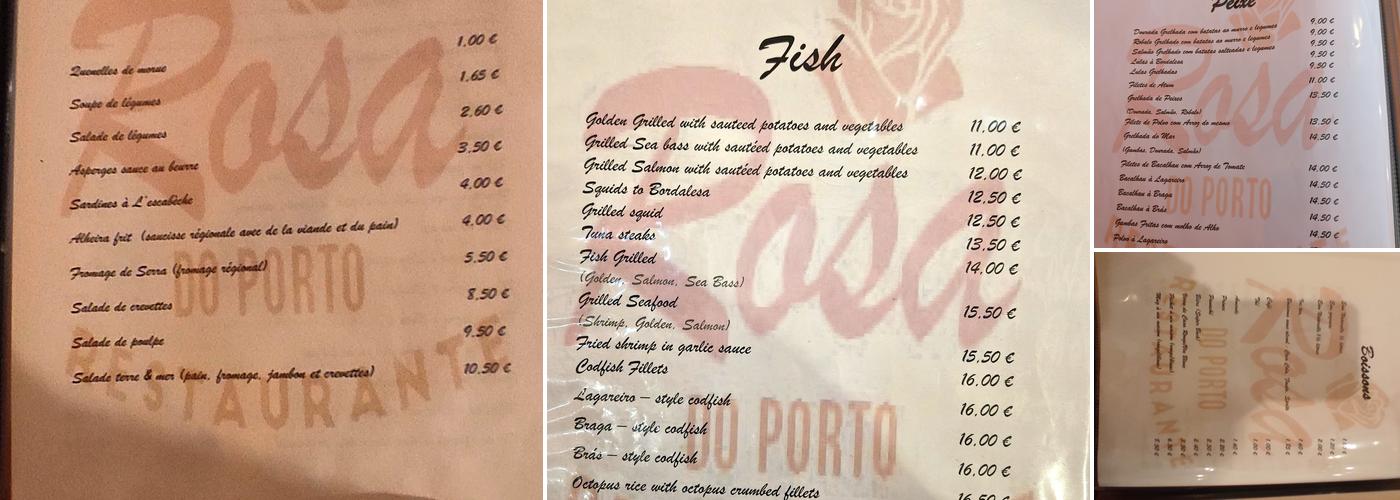 1,00 €
Quenelles de morue
1,65 €
Soupe de légumes
2,60 €
Salade de légumes
3,50 €
Asperges sauce au beurre
4,00 €
Sardines à L'escabèche
4,00 €
Alheira frit (saucisse régionale avec de la viande et du pain)
5,50 €
Fromage de Serra (fromage régional)
8,50 €
Salade de crevettes
9,50 €
Salade de poulpe
10,50 €
Salade terre & mer (pain, fromage, jambon et crevettes)
Rosa
DO PORTO
RESTAURANTE
Fish
Golden Grilled with sauteed potatoes and vegetables 11,00 €
Grilled Sea bass with sautéed potatoes and vegetables 11,00 €
Grilled Salmon with sautéed potatoes and vegetables 12,00 €
Squids to Bordalesa 12,50 €
Grilled squid 12,50 €
Tuna steaks 13,50 €
Fish Grilled 14,00 €
(Golden, Salmon, Sea Bass)
Grilled Seafood 15,50 €
(Shrimp, Golden, Salmon)
Fried shrimp in garlic sauce 15,50 €
Codfish Fillets 16,00 €
Lagareiro – style codfish 16,00 €
Braga – style codfish 16,00 €
Brás – style codfish 16,00 €
Octopus rice with octopus crumbed fillets 16,50 €
Rosa
DO PORTO
Peixe
Dourada Grelhada com batatas ao murro e legumes 9,00 €
Robalo Grelhado com batatas ao murro e legumes 9,00 €
Salmão Grelhado com batatas salteadas e legumes 9,50 €
Lulas à Bordalesa 9,50 €
Lulas Grelhadas 9,50 €
Filetes de Atum 11,00 €
Grelhada de Peixes 13,50 €
(Dourada, Salmão, Robalo)
Filete de Polvo com Arroz do mesmo 13,50 €
Grelhada do Mar 14,50 €
(Gambas, Dourada, Salmão)
Filetes de Bacalhau com Arroz de Tomate 14,00 €
Bacalhau à Lagareiro 14,50 €
Bacalhau à Braga 14,50 €
Bacalhau à Brás 14,50 €
Gambas Fritas com molho de Alho 14,50 €
Polvo à Lagareiro
Rosa
DO PORTO
Boissons
Rosa
DO PORTO